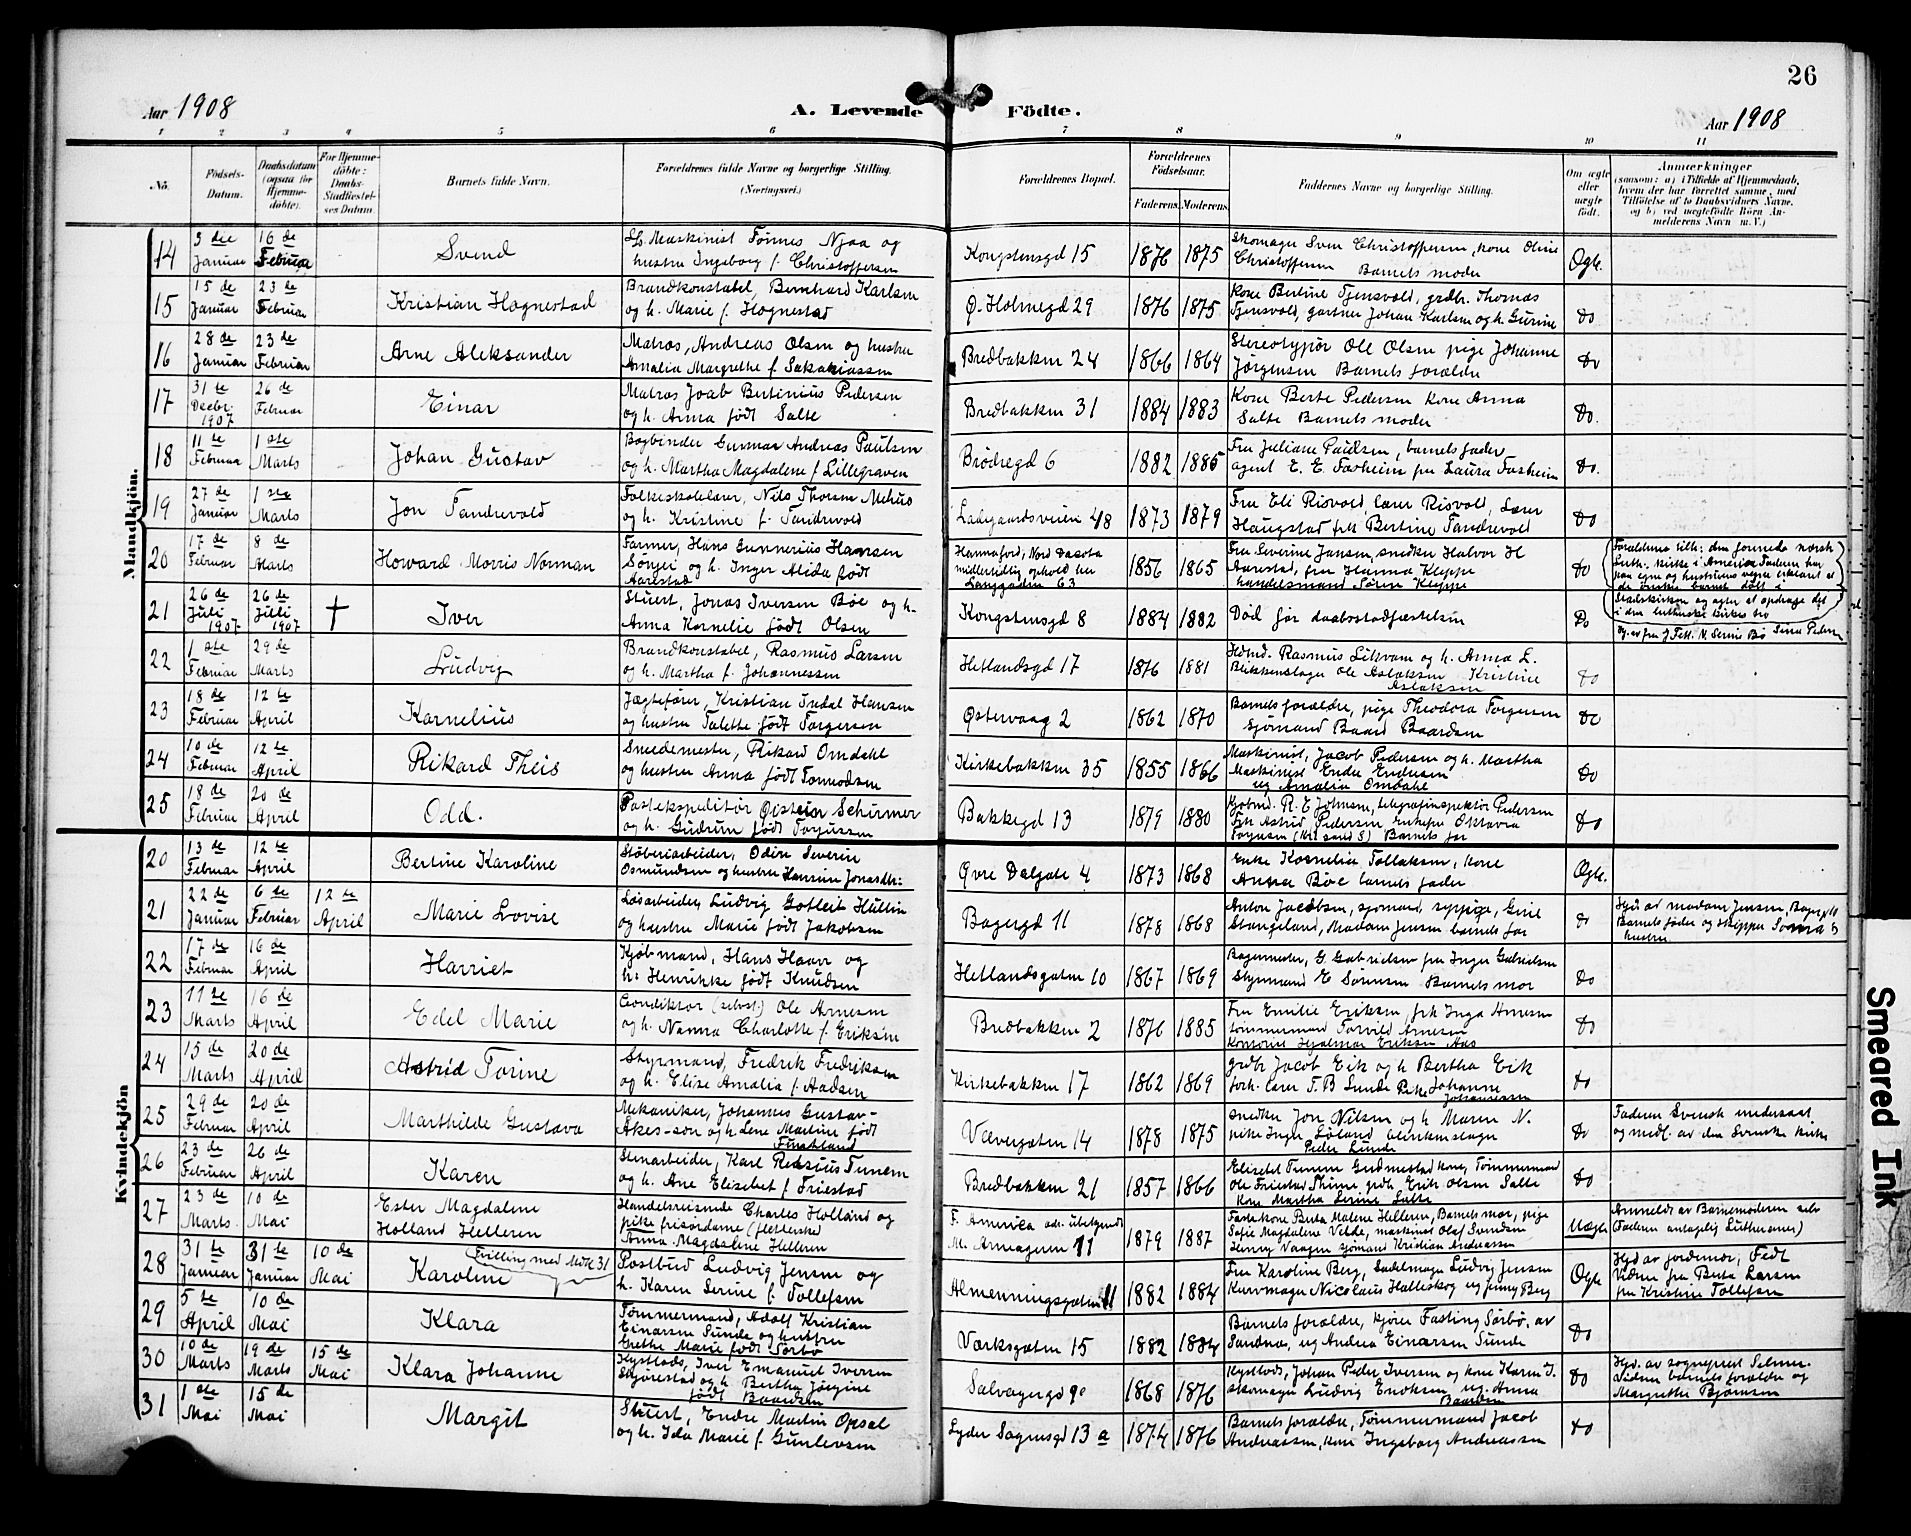 26
Aar 1908
A. Levende Födte.
Aar 1908
1 2 3 4 5 6 7 8 9 10 11
Nö.
Födsels-Datum.
Daabsdatum (ogsaa for Hjemme-döbte).
For Hjemme-döbte: Daabs-Stadfæstel-ses Datum.
Barnets fulde Navn.
Forældrenes fulde Navne og borgerlige Stilling. (Næringsvei.)
Forældrenes Bopæl.
Forældrenes Födselsaar.
Faderens. Moderens.
Faddernes Navne og borgerlige Stilling.
Om ægte eller uægte födt.
Anmærkninger
(saasom: a) i Tilfælde af Hjemmedaab, hvem der har forrettet samme, med Tilföielse af to Daabsvidners Navne, og b) ved uægtefödte Börn Anmelderens Navn m. V.)
Mandkjön.
14 3die Januar 16de Februar Svend
Maskinist Tönnes Njaa og
hustru Ingeborg f. Christoffersen
Kongstensgd 15 1876 1875
Skomager Sven Christoffersen, kone Oline
Christoffersen Barnets moder
Ægte.
15 15de Januar 23de Februar Kristian Hognestad
Brandkonstabel Bernhard Karlsen
og h. Marie f. Hognestad
Ø. Holmegd 29 1876 1875
Kone Bertine Tjensvold, grdbr. Thomas
Tjensvold, gartner Johan Karlsen og h. Gurine
Do
16 28de Januar 23de Februar Arne Aleksander
Matros, Andreas Olsen og hustru
Amalia Margrethe f. Sakariassen
Bredbakken 24 1866 1864
Stereotypör Ole Olsen pige Johanne
Jörgensen Barnets forældre
Do
17 31te Decbr. 1907 26de Februar Einar
Matros Joab Bertinius Pedersen
og h. Anna födt Salte
Bredbakken 31 1884 1883
Kone Berte Pedersen kone Anna
Salte Barnets moder
Do.
18 11te Februar 1ste Marts Johan Gustav
Bogbinder Gunnar Andreas Paulsen
og h. Martha Magdalene f. Lillegraven
Brödregd 6 1882 1885
Fru Juliane Paulsen, barnets fader
agent E. E. Fasheim fru Laura Fasheim
Do.
19 27de Januar 1ste Marts Jon Tandrevold
Folkeskolelærer, Nils Thorsen Mehus
og h. Kristine f. Tandrevold
Ladegaardsveien 48 1873 1879
Fru Eli Risvold lærer Risvold, Lærer
Haugstad frk Bertine Tandrevold
Do
20 17de Februar 8de Marts Howard Morris Norman
Farmer, Hans Gunnerius Hansen
og h. Inger Alida födt
Aarestad
Hannaford, Nord Dacota
midlertidig ophold her
Langgaden 63 1856 1865
Fru Severine Jansen, snedker Halvor H
Aarestad, fru Hanna Kleppe
handelsmand Sören Kleppe
Do
Forældrene tilh: den forenede norsk
luth. kirke i Amerika. Faderen har
paa egne og hustrues vegne erklæret at
de önske barnet döbt i
Statskirken og agter at opdrage det
i den lutherske kirkes tro
21 26de Juli 1907 26de Juli 1907 † Iver
Stuert, Jonas Iversen Böe og h.
Anna Kornelie födt Olsen
Kongstensgd 8 1884 1882
Död för daabsstadfæstelsen
Do
22 1ste Februar 29de Marts Ludvig
Brandkonstabel, Rasmus Larsen
og h. Martha f. Johannessen
Hetlandsgd 17 1876 1881
Rasmus Likvam og h. Anna L.
Blikkenslager Ole Aslaksen Kristine
Aslaksen
Do
23 18de Februar 12te April Karnelius
Jægtefører, Kristian Indal Hansen
og hustru Talette födt Torgersen
Østervaag 2 1862 1870
Barnets forældre, pige Theodora Torgersen
Sjömand Baard Baardsen
Do
24 10de Februar 12te April Rikard Theis
Smedemester, Rikard Omdahl
og hustru Anna födt Tonnodsen
Kirkebakken 35 1855 1866
Maskinist, Jacob Pedersen og h. Martha
Maskinist Endre Endresen
og Amalia Omdahl
Do
25 18de Februar 20de April Odd.
Postekspeditör Öistein Schirmer
og h. Gudrun födt Torjussen
Bakkegd 13 1879 1880
R. E. Johnsen, telegrafinspektör Pedersen
Frk Astrid Pedersen Enkefru Oktavia
Barnets far
Do
Kvindekjön
20 13de Februar 12te April Bertine Karoline
Stöberiarbeider, Odin Severin
Osmundsen og hustru Hansine Jonasdtr:
Øvre Dalgate 4 1873 1868
Enke Kornelia Tollaksen, kone
Anna Böe barnets fader
Ægte.
21 22de Januar 6de Februar 12te April Marie Lovise
Løsarbeider, Ludvig Gotleit Hultin
og hustru Marie födt Jakobsen
Bagergd 11 1878 1868
Anton Jacobsen, sjömand, sypige, Gine
Stangeland, Madam Jensen barnets far
Do
Hjd af madam Jensen, Bagergd 10
Barnets fader og skipper
hustru
22 17de Februar 16de April Harriet
Kjöbmand, Hans Haarr og
h: Henrikke födt Knudsen
Hetlandsgaten 10 1867 1869
Bagermester, G. Gabrielsen fru Inger Gabrielsen
Styrmand E Sörensen Barnets mor
Do
23 11te Marts 16de April Edel Marie
Conduktör Ole Arnesen
og h. Nanna Charlotte f. Eriksen
Bredbakken 2 1876 1885
Fru Emilie Eriksen, frk Inga Arnesen
tömmermand Torvild Arnesen
Kontorist Hjalmar Eriksen Aas
Do
24 15de Marts 20de April Astrid Torine
Styrmand, Fredrik Fredriksen
og h. Elise Amalia f. Aadsen
Kirkebakken 17 1862 1869
grdbr Jacob Eik og h Bertha Eik
forh. lærer T. B Lunde Pike Johanne
Johannessen
Do
25 29de Februar 20de April Marthilde Gustava
Mekaniker, Johannes Gustav
Åkes-son og h. Lene Martine födt
Væveregaten 14 1878 1875
snedker Jon Nilsen og h Maren N.
pike Inger blikkenslager
Peder Lunde
Do
Faderen Svensk undersaat
og medl. av den Svenske kirke
26 23de Februar 26de April Karen
Stenarbeider, Karl Tunem
og h. Ane Elisebet f. Friestad
Bredbakken 21 1857 1866
Elisebet Tunem Gudmestad kone, Tömmermand
Ole Friestad Thime grdb. Erik Olsen Salte
Kone Martha Serine Salte
Do
27 23de Marts. 10de Mai Ester Magdalene
Holland Helleren
Handelsreisende Charles Holland og
pike frisördame (fletterske)
Anna Magdalene Helleren
F. America adr. ubekjendt
M. Armagerne 11 1879 1887
Fastekone Berta Malene Helleren, Barnets mor, pige
Sofie Magdalene Velde, maskinist Olaf Svendsen
Henry Vaagen sjömand Kristian Andreassen
Uægte
Anmeldt av Barnemoderen selv
(Faderen antagelig Lutheraner)
28 31te Januar 31te Januar 10de Mai Karoline
Tvilling med No 31
Postbud Ludvig Jensen og
h. Karen Serine f. Tollefsen
Almenningsgaten 11 1882 1884
Fru Karoline Berg, Sadelmager Ludvig Jensen
Kurvmager Nicolaus Halleskog og Jenny Berg
Ægte
Hjd av jordemor, Fedt
Vidner fru Berta Larsen
fru Kristine Tollefsen
29 5te April 10de Mai Klara
Tömmermand, Adolf Kristian
Einarsen Sunde og hustru
Grethe Marie födt Sörbö
Værksgaten 15 1882 1884
Barnets forældre, kjörer Fasting Sörbö, av
Sandnes, og Andrea Einarsen Sunde
Do
30 10de Marts 19de Marts 15de Mai Klara Johanne
Kystlods, Iver Emanuel Iversen
Skjörestad og h. Bertha Jörgine
födt Baardsen
Salvagergd 9 1868 1876
Kystlods, Johan Peder Iversen og kone Karen I.
skomager Ludvig Enoksen og Anna
Baardsen
Do
Hjd. av sogneprest Selmer.
Vidner barnets forældre og
Margrethe Bjørnsen
31 1ste Mai 15de Mai Margit
Stuert, Endre Martin Opsal
og h. Ida Marie f. Gunlevsen
Lyder Sagensgd 13 a 1874 1876
Barnets forældre, Tömmermand Jacob
Andreassen, kone Ingeborg Andreassen
Do
Smeared Ink